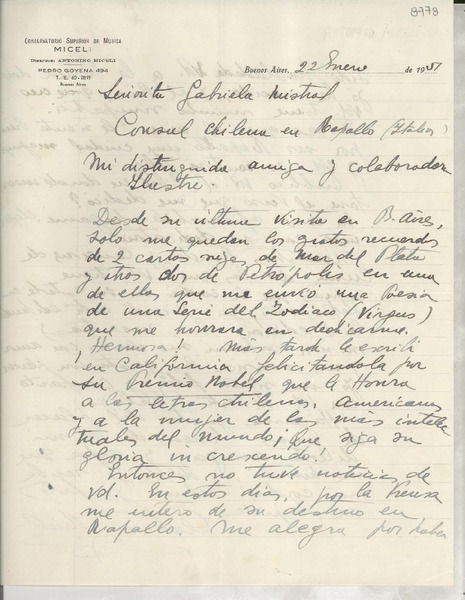 8778
CONSERVATORIO SUPERIOR DE MÚSICA
MICELI
DIRECTOR: ANTONINO MICELI
PEDRO GOYENA 494
T. E. 60-
Buenos Aires
Buenos Aires, 22 Enero de 1951
Señorita Gabriela Mistral
Consul Chilena en Rapallo (Italia)
Mi distinguida amiga y colaboradora
Ilustre:
Desde su última visita en B. Aires,
solo me quedan los gratos recuerdos
de 2 cartas suyas de Mar del Plata
y otras dos de Petrópolis en una
de ellas que me envió una Poesía
de una Serie del Zodíaco (Virgus)
que me honrara en dedicarme.
¡Hermosa! Más tarde le escribí
en California felicitandola por
su Premio Nobel que le Honra
a las letras chilenas, americanas
y a la mujer de las más intelec
tuales del mundo; ¡que siga su
gloria in crescendo!
Entonces no tuve noticias de
Vd. En estos días, por la Prensa
me entero de su destino en
Rapallo. Me alegra por haber